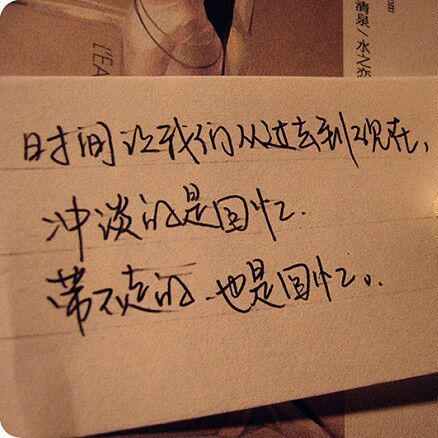 清泉/水心恋
时间让我们从过去到现在,
冲淡的是回忆.
带不走的.也是回忆。